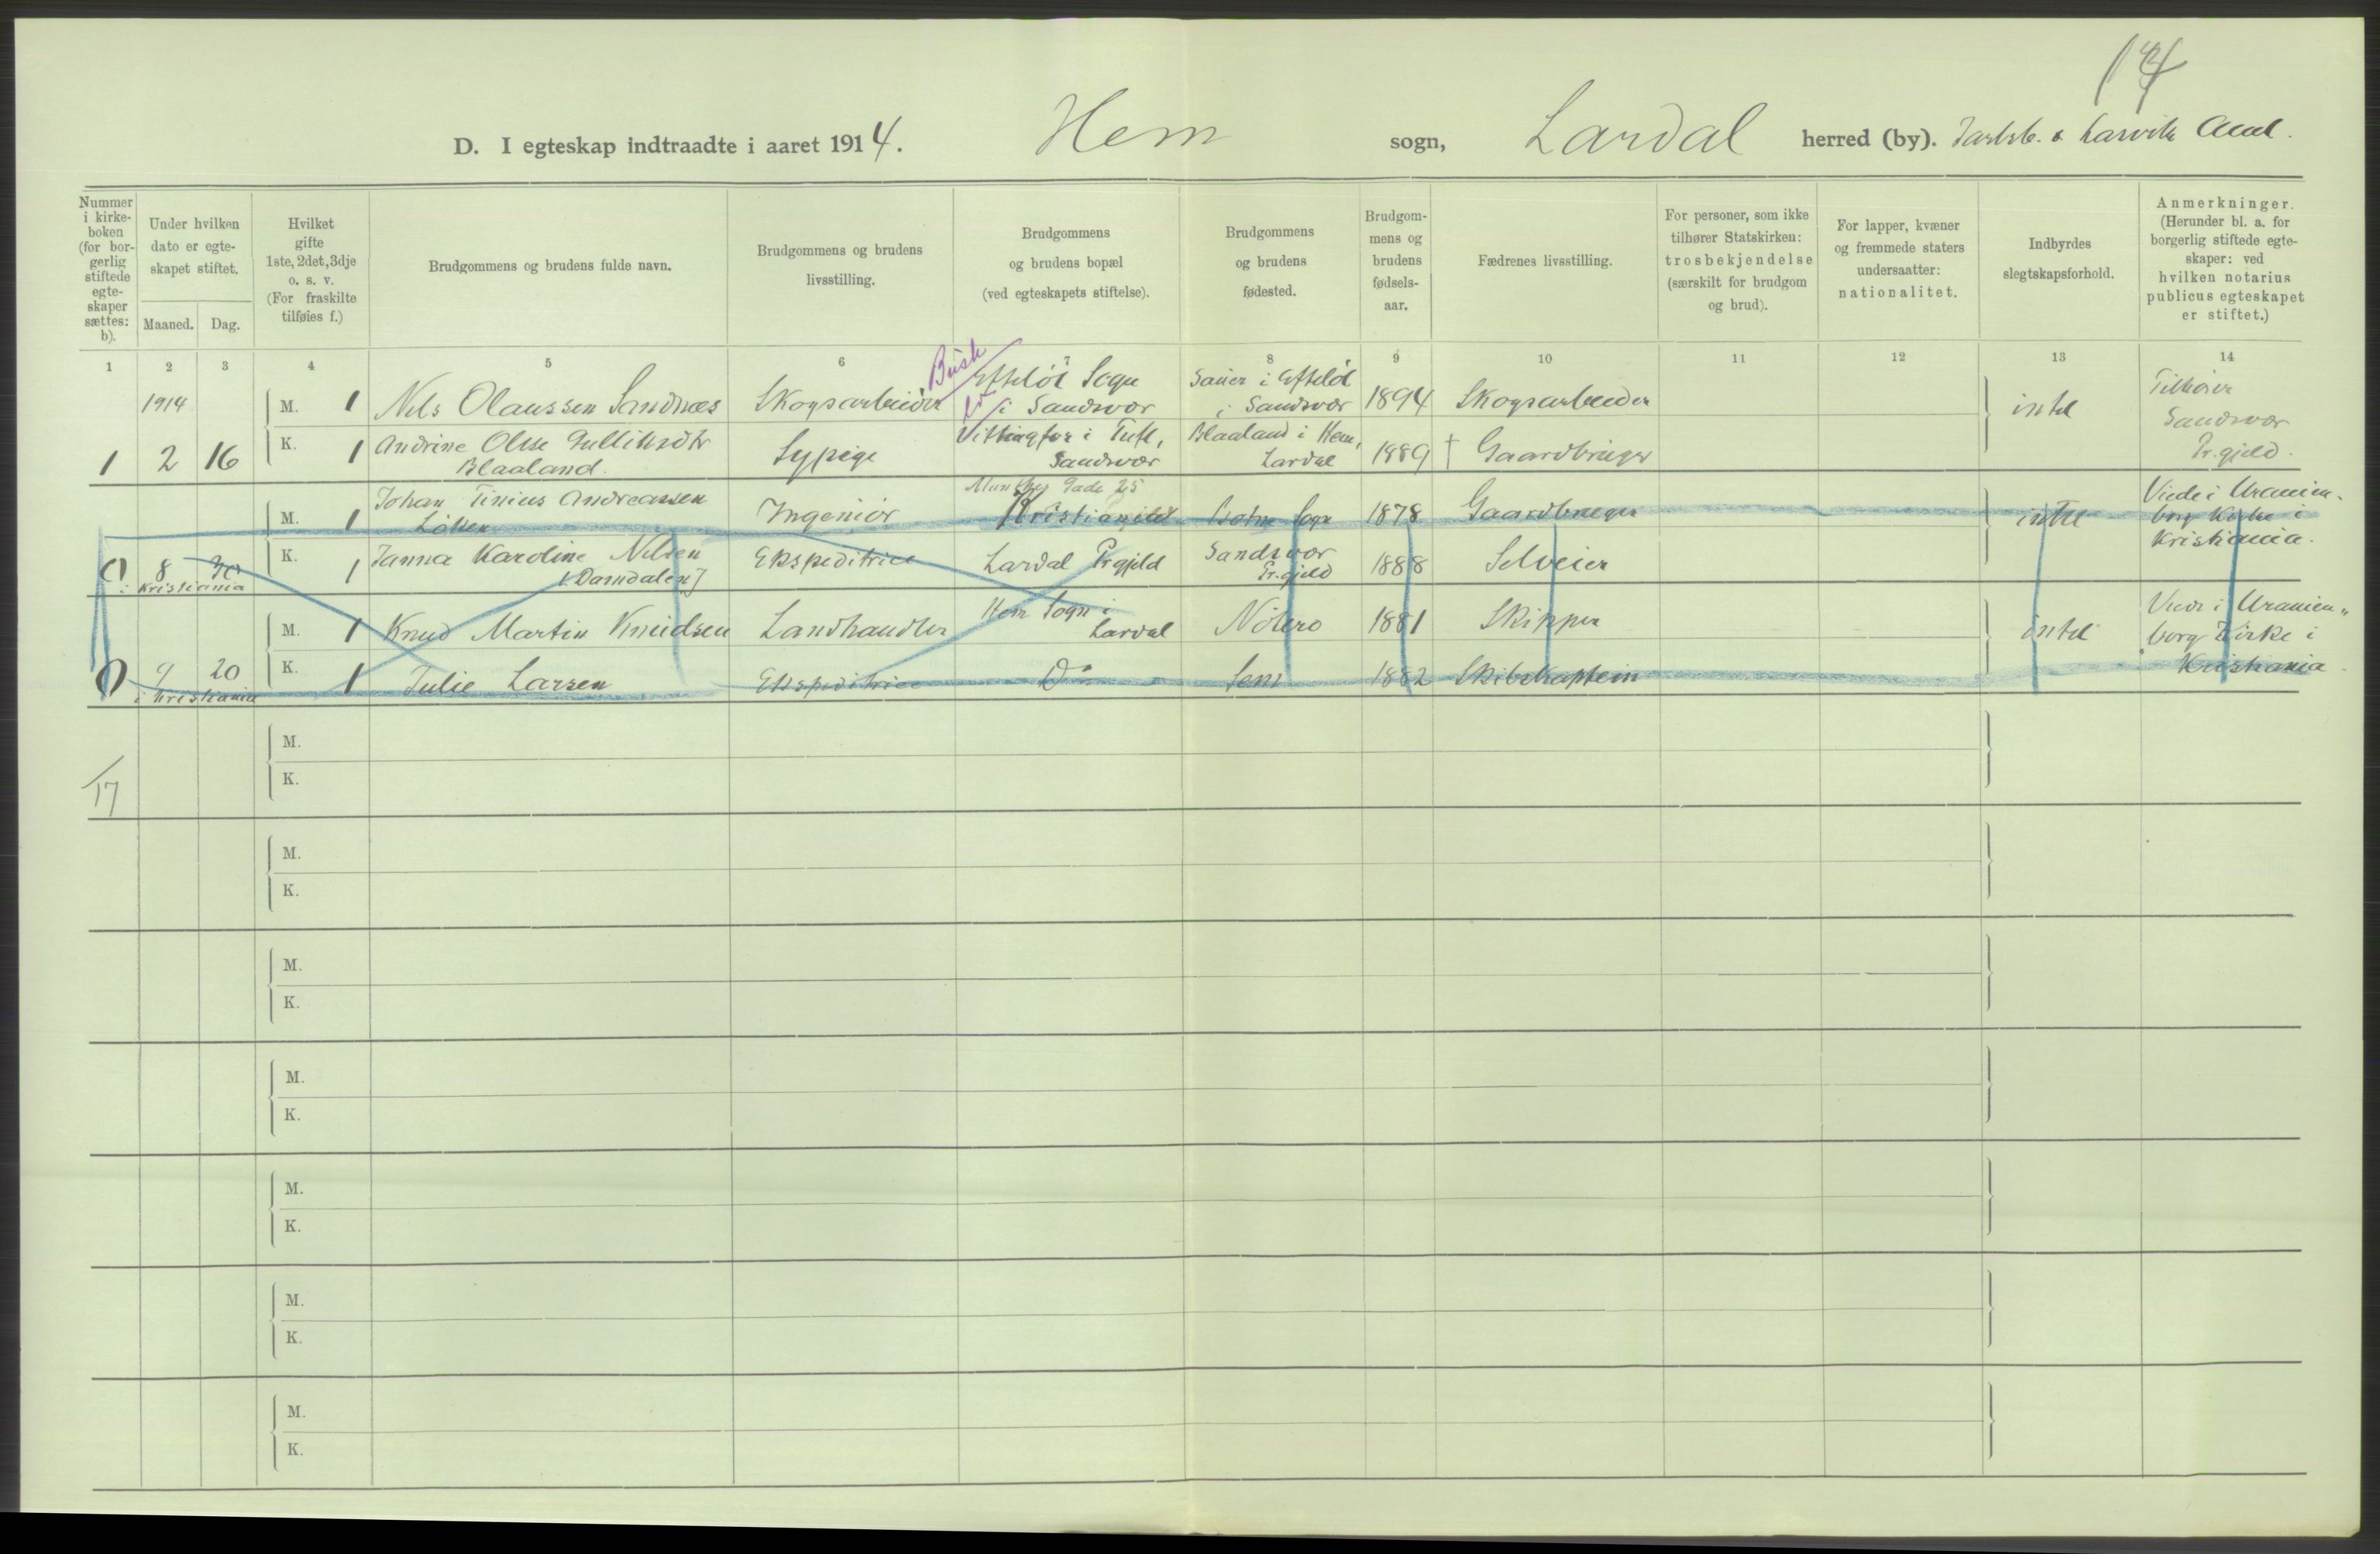 D. I egteskap indtraadte i aaret 1914. Hem sogn, Lardal herred (by). Jarlsb. & Larvik Amt.
Nummer i kirke-boken (for bor-gerlig stiftede egte-skaper sættes: b).
Under hvilken dato er egte-skapet stiftet.
Maaned. Dag.
Hvilket gifte 1ste, 2det, 3dje o. s. v. (For fraskilte tilføies f.)
Brudgommens og brudens fulde navn.
Brudgommens og brudens livsstilling.
Brudgommens og brudens bopæl (ved egteskapets stiftelse).
Brudgommens og brudens fødested.
Brudgom-mens og brudens fødsels-aar.
Fædrenes livsstilling.
For personer, som ikke tilhører Statskirken: trosbekjendelse (særskilt for brudgom og brud).
For lapper, kvæner og fremmede staters undersaatter: nationalitet.
Indbyrdes slegtskapsforhold.
Anmerkninger. (Herunder bl. a. for borgerlig stiftede egte-skaper: ved hvilken notarius publicus egteskapet er stiftet.)
1 2 3 4 5 6 7 8 9 10 11 12 13 14
Busk
1914 M. 1 Nels Olaussen Sandnæs Skogsarbeider Efteløt Sogn i Sandsvær Sauer i Efteløt i Sandsvær 1894 Skogsarbeider intet Tilhører Sandsvær Pr.gjeld.
1 2 16 K. 1 Andrine Olse Gulliksdtr Blaaland. Sypige Vittingfos i Tuft, Sandsvær Blaaland i Hem, Lardal 1889 † Gaardbruger
M. 1 Johan Tinius Andreassen Løkken Ingeniør Munthes Gade 25 Kristiania Botne Sogn 1878 Gaardbruger intet Viede i Uranien-borg Kirke i Kristiania.
0 8 30 i Kristiania K. 1 Janna Karoline Nilsen (Damdalen) Ekspeditrice Lardal Prgjeld Sandsvær Pr.gjeld 1888 Selveier
M. 1 Knud Martin Knudsen Landhandler Hem Sogn i Lardal Nøtterø 1881 Skipper intet Viede i Uranien-borg Kirke i Kristiania.
0 9 20 i Kristiania K. 1 Julie Larsen Ekspeditrice Do Sem 1882 Skibskaptein
M.
K.
17
M.
K.
M.
K.
M.
K.
M.
K.
M.
K.
M.
K.